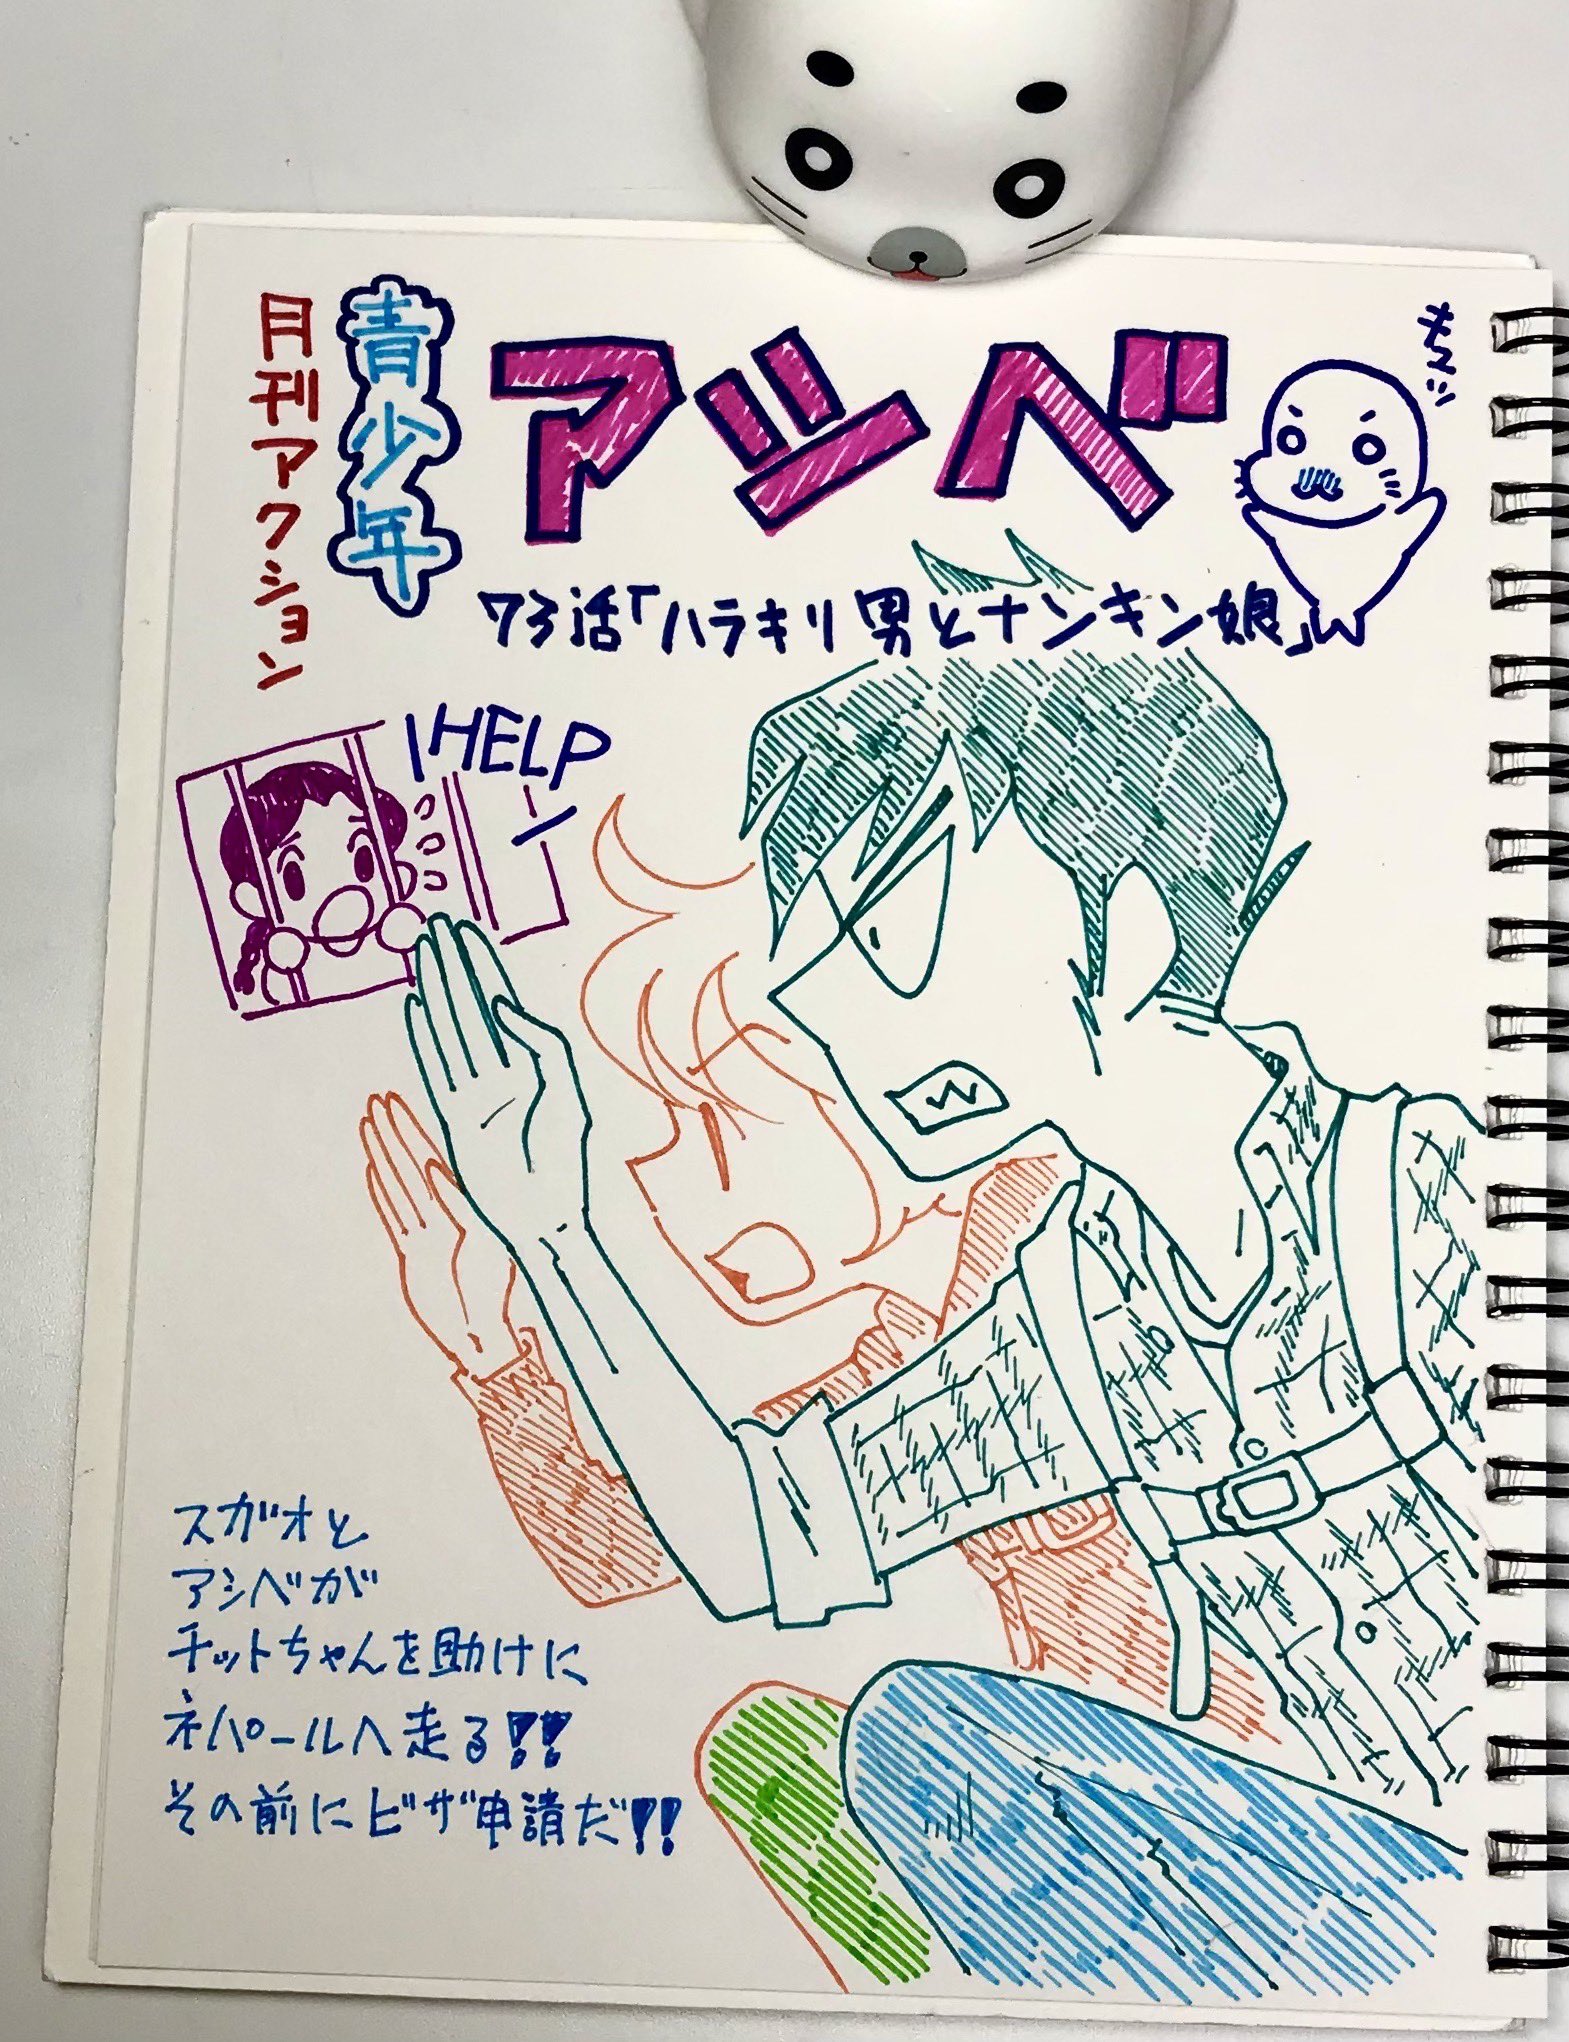 月刊アクション
青少年
アシベ
73話「ハラキリ男とナンキン娘」
HELP
スガオと
アシベが
チットちゃんを助けに
ネパールへ走る!!
その前にビザ申請だ!!